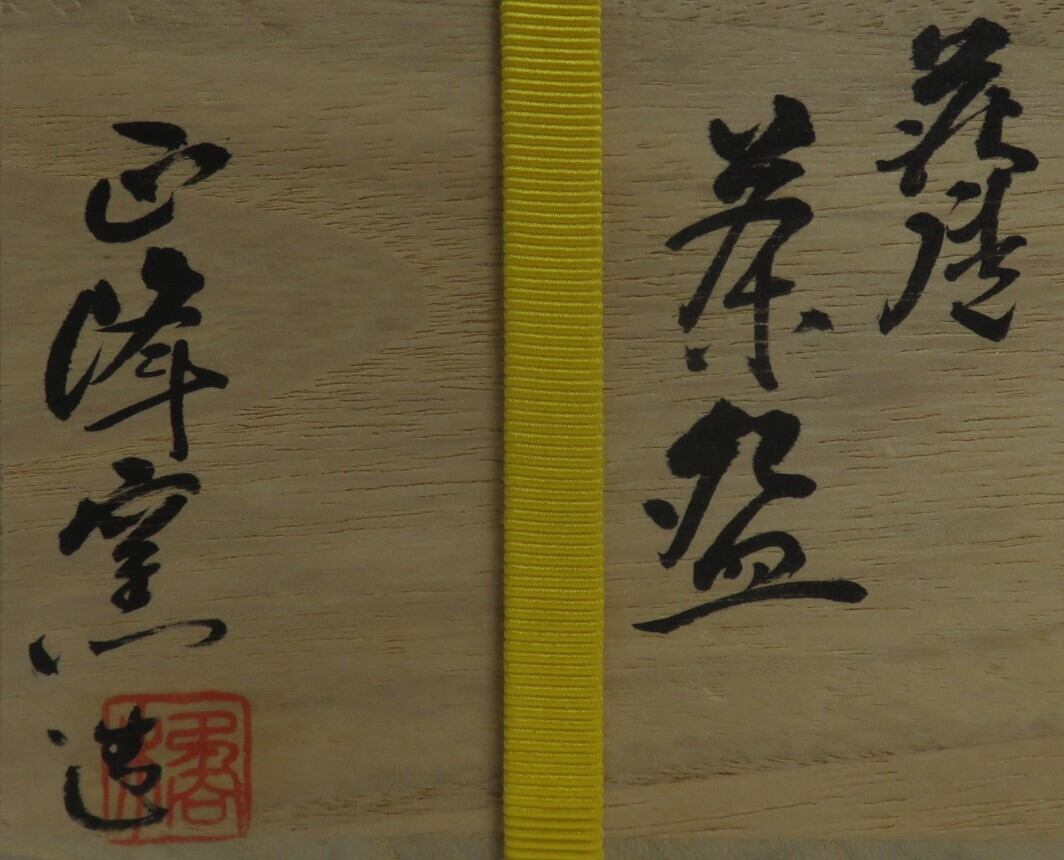 萩焼
茶盌
正峰窯造